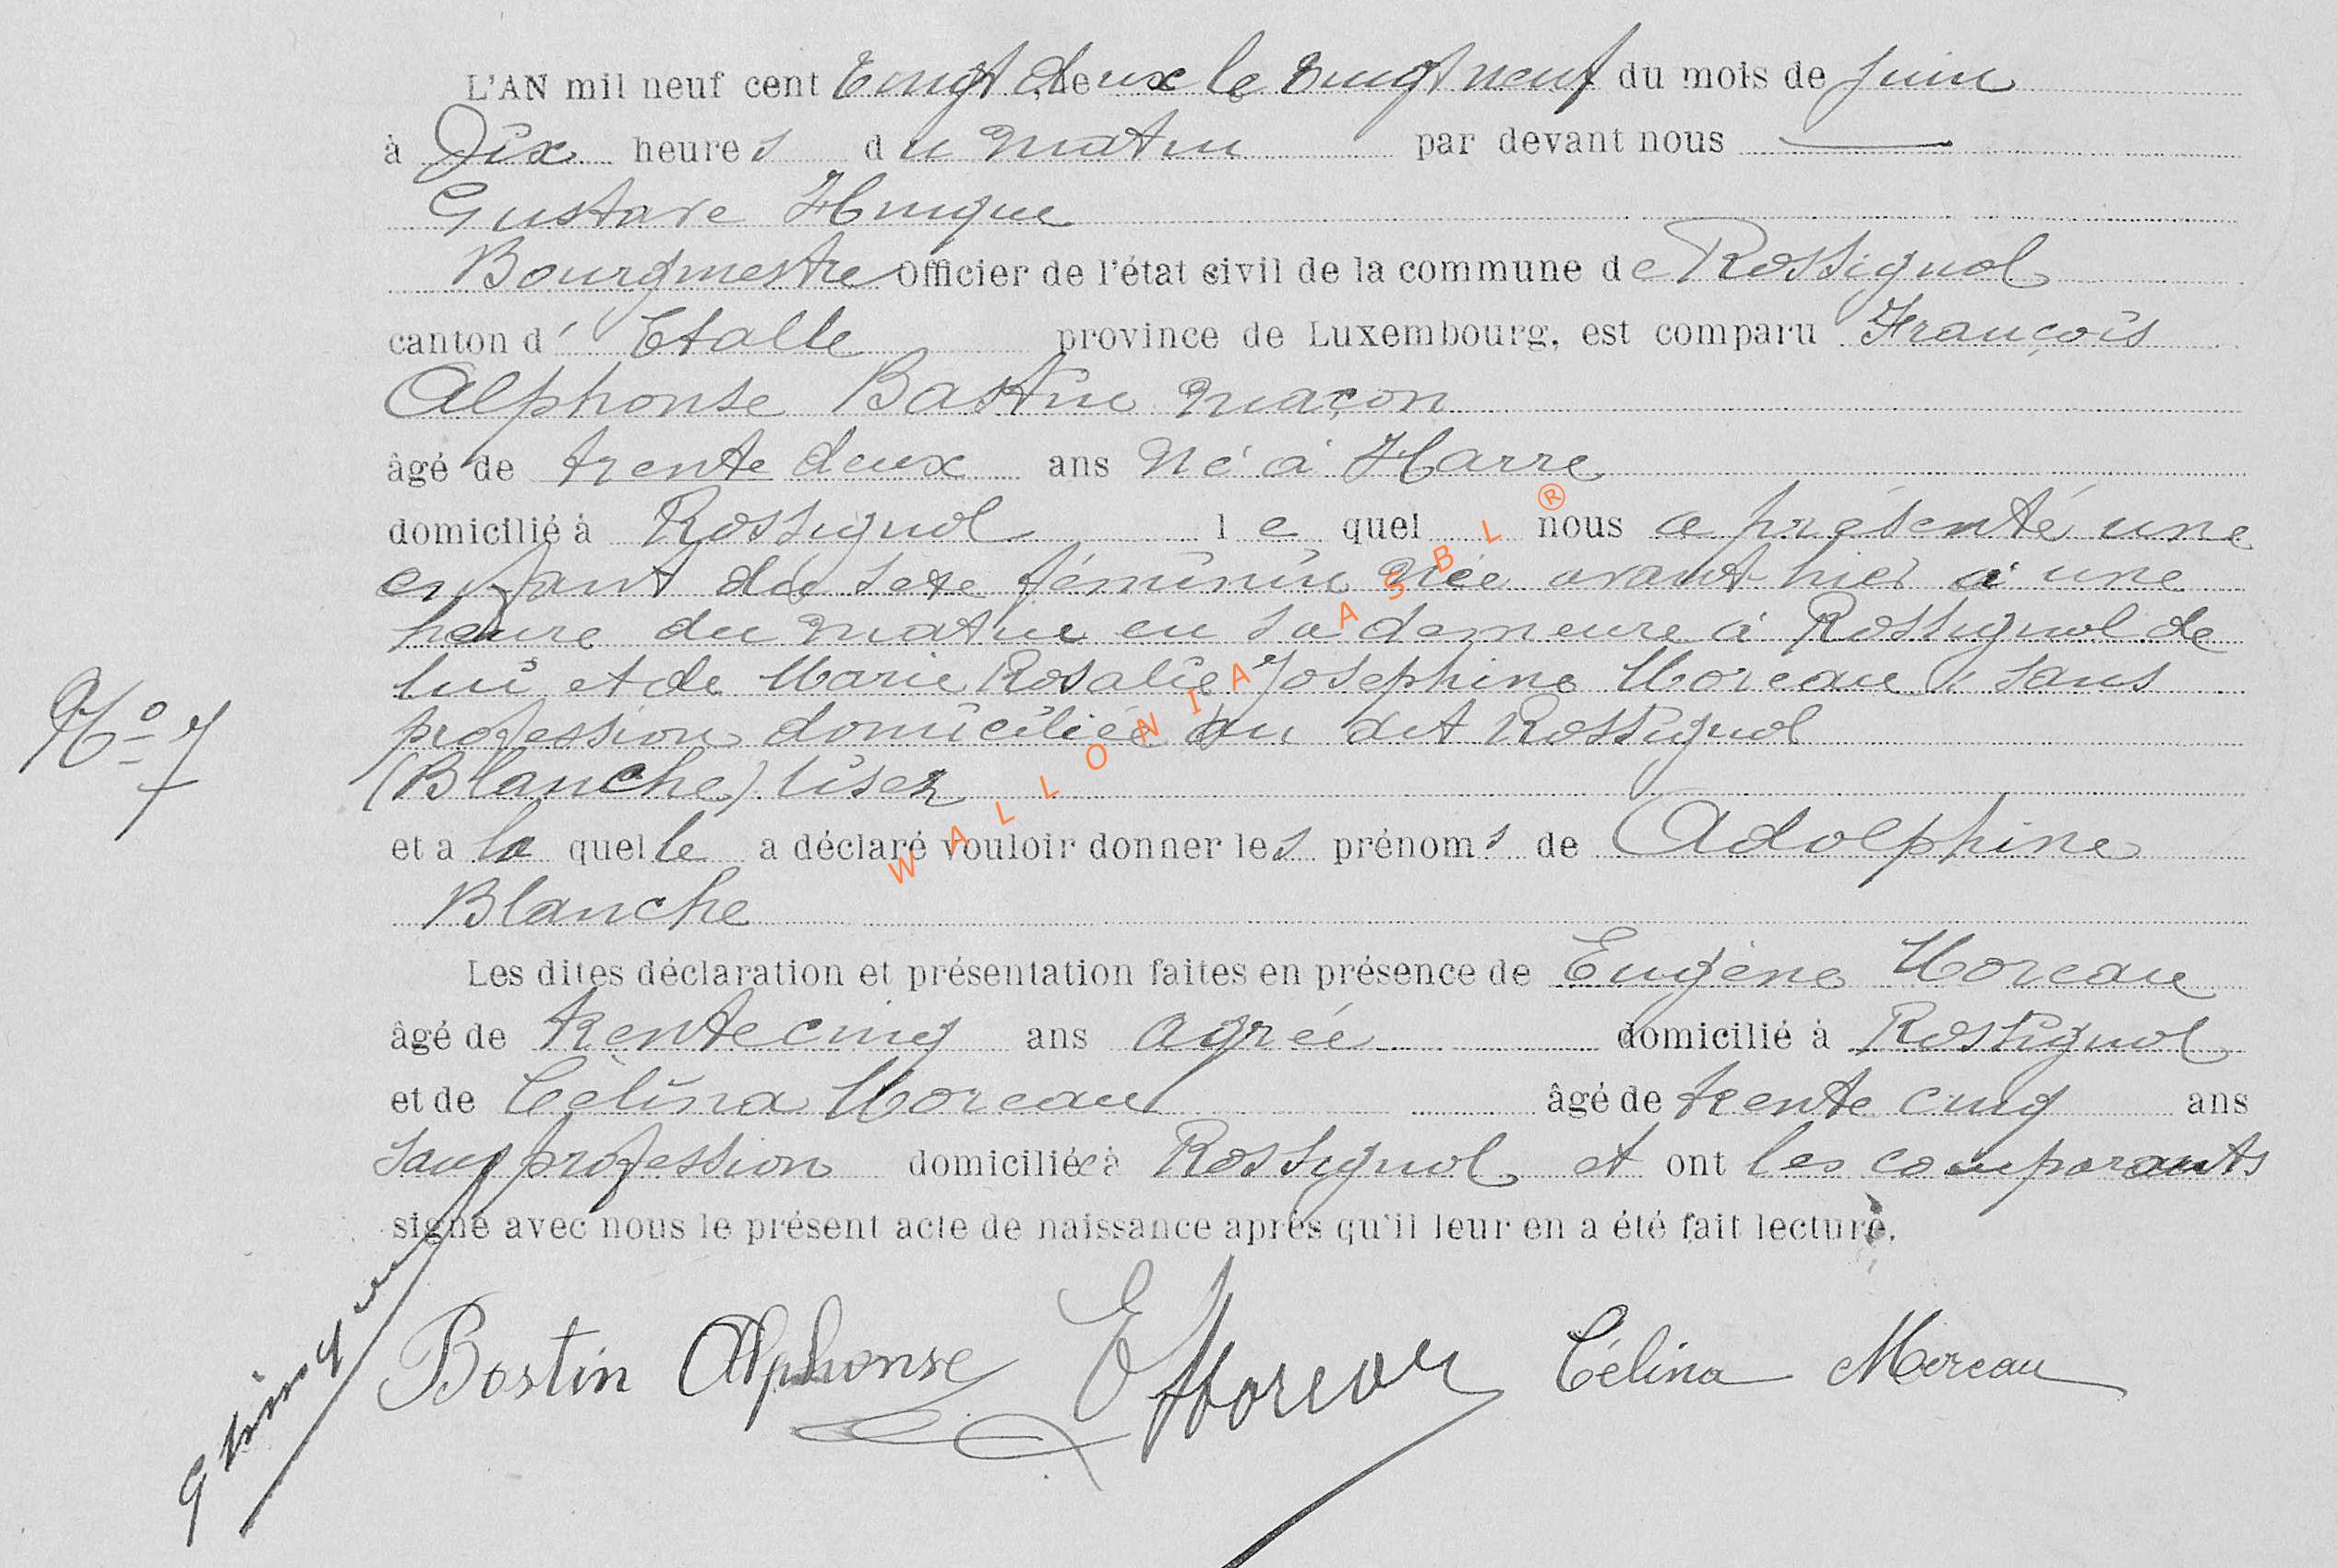 L'AN mil neuf cent vingt deux le vingt neuf du mois de juin
à Dix heures du matin par devant nous
Gustave Hurique
Bourgmestre Officier de l'état civil de la commune de Rossignol
canton d' Etalle province de Luxembourg, est comparu François
Alphonse Bastin maçon
âgé de trente deux ans né à Harre
domicilié à Rossignol le quel nous a présenté une
enfant du sexe féminin née avant hier à une
heure du matin en sa demeure à Rossignol de
lui et de Marie Rosalie Josephine Moreau, sans
N° 7
profession domiciliée au dit Rossignol
(Blanche) lisez
et a la quelle a déclaré vouloir donner les prénoms de Adolphine
Blanche
Les dites déclaration et présentation faites en présence de Eugène Moreau
âgé de trente cinq ans agréé domicilié à Rossignol
et de Célina Moreau âgé de trente cinq ans
sans profession domiciliée à Rossignol et ont les comparants
signé avec nous le présent acte de naissance après qu'il leur en a été fait lecture.
Bastin Alphonse E Moreau Célina Moreau
WALLONIA ASBL ®